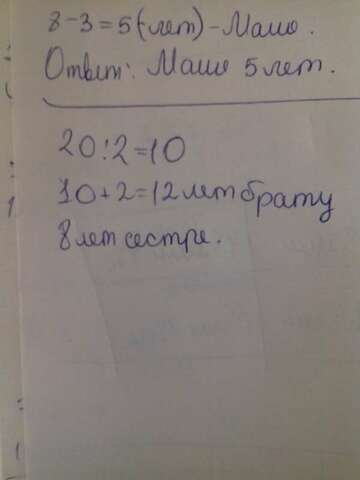 8-3=5(лет)-Маше.
Ответ: Маше 5 лет.
20:2=10
10+2=12 лет брату
8 лет сестре.